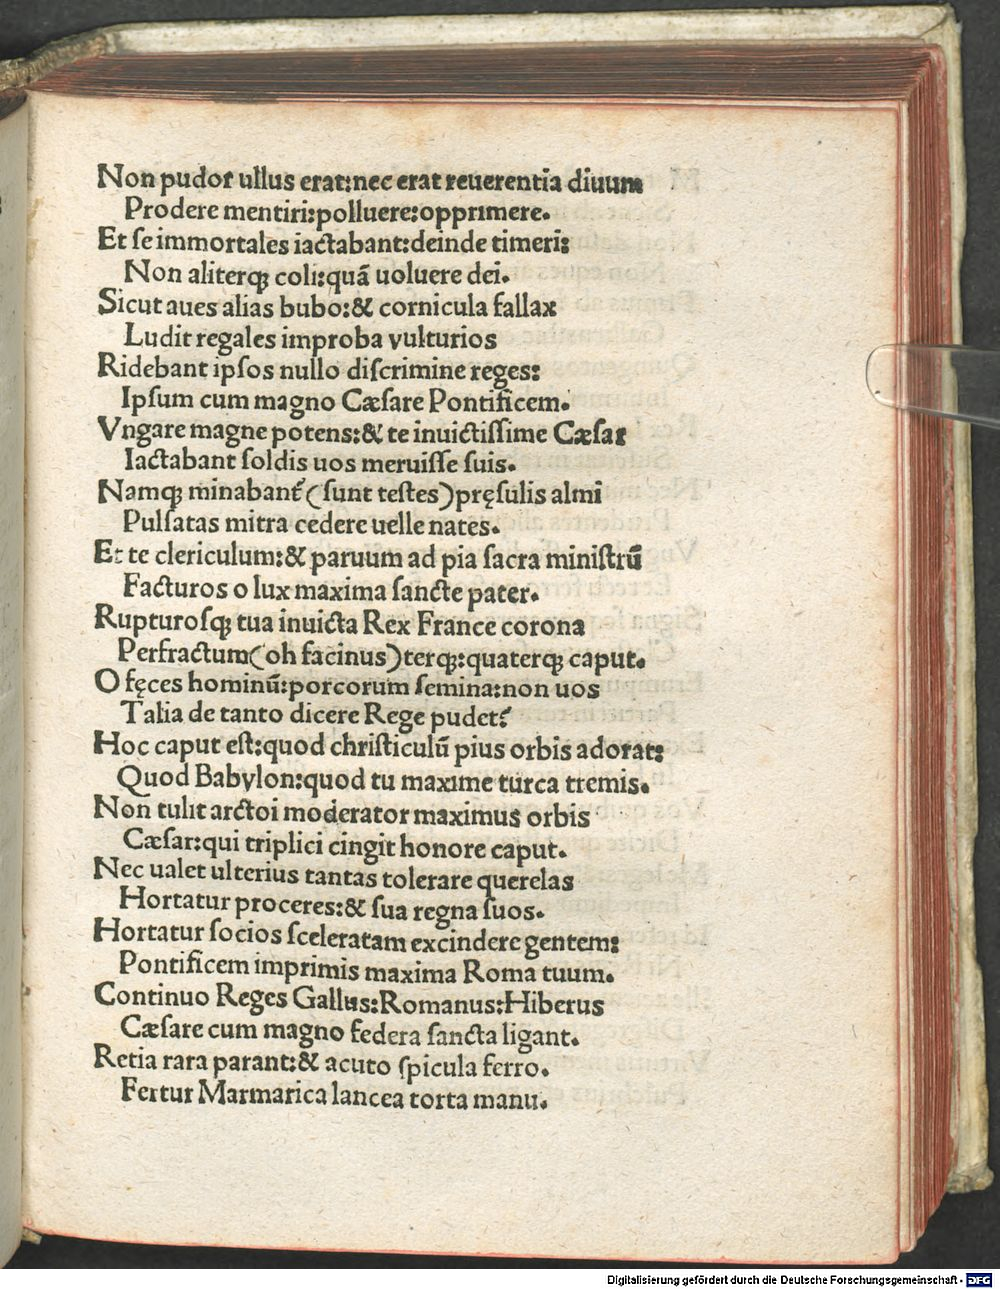 Non pudor ullus erat:nec erat reuerentia diuum
Prodere mentiri:polluere:opprimere.
Et ſe immortales iactabant:deinde timeri:
Non aliterqꝫ coli:quā uoluere dei.
Sicut aues alias bubo:& cornicula fallax
Ludit regales improba vulturios
Ridebant ipſos nullo diſcrimine reges:
Ipſum cum magno Cæſare Pontificem.
Vngare magne potens:& te inuictiſſime Cæſar
Iactabant ſoldis uos meruiſſe ſuis.
Namqꝫ minabant᷑ (ſunt teſtes) pręſulis almi
Pulſatas mitra cedere uelle nates.
Et te clericulum:& paruum ad pia ſacra miniſtrū
Facturos o lux maxima ſancte pater.
Rupturoſqꝫ tua inuicta Rex France corona
Perfractum(oh facinus)terqꝫ:quaterqꝫ caput.
O fęces hominū:porcorum ſemina:non uos
Talia de tanto dicere Rege pudet?
Hoc caput eſt:quod chriſticulū pius orbis adorat:
Quod Babylon:quod tu maxime turca tremis.
Non tulit arctoi moderator maximus orbis
Cæſar:qui triplici cingit honore caput.
Nec ualet ulterius tantas tolerare querelas
Hortatur proceres:& ſua regna ſuos.
Hortatur ſocios ſceleratam excindere gentem:
Pontificem imprimis maxima Roma tuum.
Continuo Reges Gallus:Romanus:Hiberus
Cæſare cum magno federa ſancta ligant.
Retia rara parant:& acuto ſpicula ferro.
Fertur Marmarica lancea torta manu.
Digitalisierung gefördert durch die Deutsche Forschungsgemeinschaft - DFG